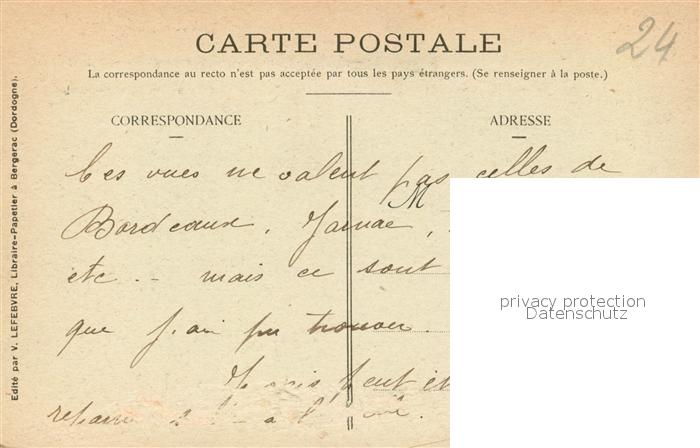 24
CARTE POSTALE
La correspondance au recto n'est pas acceptée par tous les pays étrangers. (Se renseigner à la poste.)
CORRESPONDANCE
ADRESSE
Edité par V. LEFEBVRE, Libraire-Papetier à Bergerac (Dordogne).
Ces vues ne valent pas celles de
M
Bordeaux, Jarnac,
etc .- mais ce sont
que j'ai pu trouver.
Je suis
privacy protection
Datenschutz